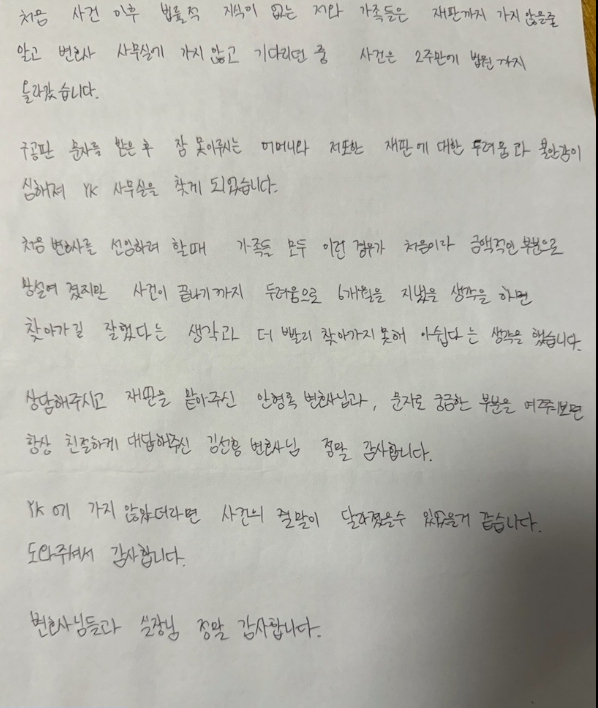 처음 사건 이후 법률적 지식이 없는 저와 가족들은 재판까지 가지 않을줄
알고 변호사 사무실에 가지 않고 기다리던 중 사건은 2주만에 법원까지
올라갔습니다.
구공판 문자를 받은 후 잠 못이루시는 어머니와 저또한 재판에 대한 두려움과 불안감이
심해져 YK 사무실을 찾게 되었습니다.
처음 변호사를 선임하려 할때 가족들 모두 이런 경우가 처음이라 금액적인 부분으로
망설여 졌지만 사건이 끝나기까지 두려움으로 6개월을 지냈을 생각을 하면
찾아가길 잘했다는 생각과 더 빨리 찾아가지 못해 아쉽다는 생각을 했습니다.
상담해주시고 재판을 맡아주신 안형록 변호사님과, 문자로 궁금한 부분을 여쭤보면
항상 친절하게 대답해주신 김선홍 변호사님 정말 감사합니다.
YK에 가지 않았더라면 사건의 결말이 달라졌을수 있었을거 같습니다.
도와주셔서 감사합니다.
변호사님들과 실장님 정말 감사합니다.